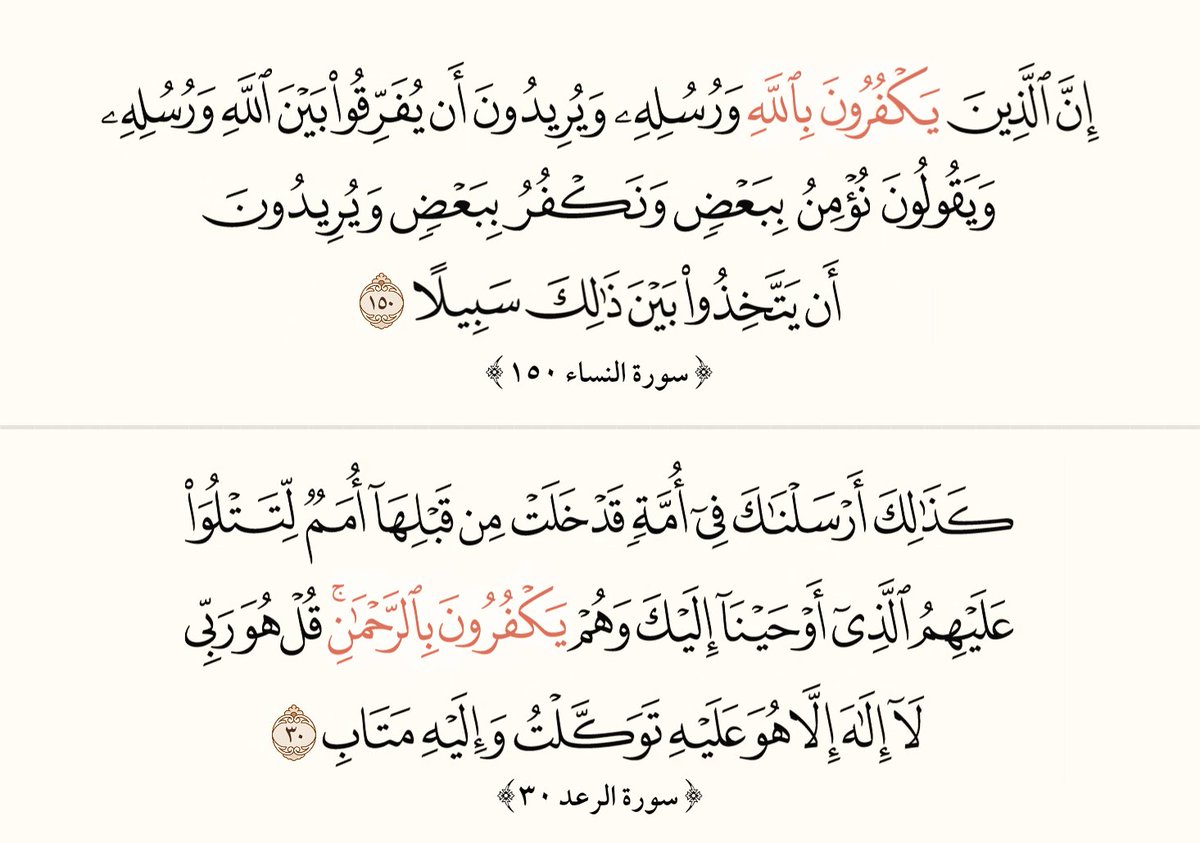 إِنَّ ٱلَّذِينَ يَكْفُرُونَ بِٱللَّهِ وَرُسُلِهِۦ وَيُرِيدُونَ أَن يُفَرِّقُوا۟ بَيْنَ ٱللَّهِ وَرُسُلِهِۦ
وَيَقُولُونَ نُؤْمِنُ بِبَعْضٍ وَنَكْفُرُ بِبَعْضٍ وَيُرِيدُونَ
أَن يَتَّخِذُوا۟ بَيْنَ ذَٰلِكَ سَبِيلًا ١٥٠
﴿سورة النساء ١٥٠﴾
كَذَٰلِكَ أَرْسَلْنَٰكَ فِىٓ أُمَّةٍ قَدْ خَلَتْ مِن قَبْلِهَآ أُمَمٌ لِّتَتْلُوَا۟
عَلَيْهِمُ ٱلَّذِىٓ أَوْحَيْنَآ إِلَيْكَ وَهُمْ يَكْفُرُونَ بِٱلرَّحْمَٰنِ ۚ قُلْ هُوَ رَبِّى
لَآ إِلَٰهَ إِلَّا هُوَ عَلَيْهِ تَوَكَّلْتُ وَإِلَيْهِ مَتَابِ ٣٠
﴿سورة الرعد ٣٠﴾